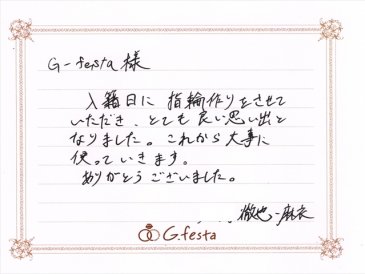 G-festa 様
入籍日に 指輪作りをさせて
いただき、とても良い思い出と
なりました。これから大事に
使っていきます。
ありがとうございました。
徹也・麻衣
G.festa